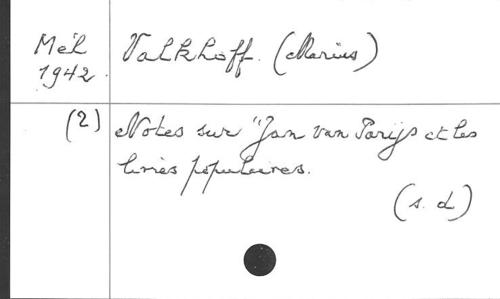 Mél Valkhoff. (Marius)
1942.
(2) Notes sur "Jan van Parijs et les
livres populaires.
(s. d)